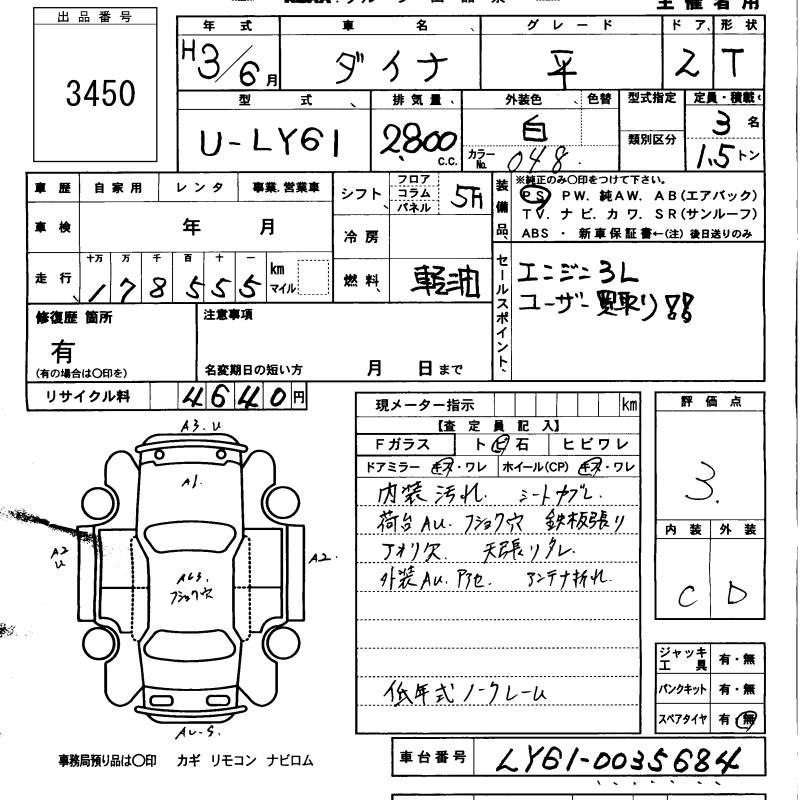 主催者用
出品番号
3450
年式 車名 グレード ドア 形状
H3/6月 ダイナ 平 2 T
型式 排気量 外装色 色替 型式指定 定員・積載
U-LY61 2800 C.C. 白 類別区分 3名
カラーNo. 048 1.5トン
車歴 自家用 レンタ 事業.営業車 シフト フロア コラム パネル 5H
装備品 ※純正のみ○印をつけて下さい。
PS PW. 純AW. AB(エアバック)
TV. ナビ. カワ. SR(サンルーフ)
ABS ・ 新車保証書←(注) 後日送りのみ
車検 年 月 冷房
走行 十万 万 千 百 十 一 km マイル 燃料 軽油
178555
セールスポイント、 エンジン3L
ユーザー買取り!!
修復歴 箇所 注意事項
有
(有の場合は○印を) 名変期日の短い方 月 日まで
リサイクル料 4640円
現メーター指示 km
【査定員記入】
Fガラス トビ石 ヒビワレ
ドアミラー キズ・ワレ ホイール(CP) キズ・ワレ
内装汚れ. シートカブレ.
荷台AU. フショク穴 鉄板張り
アオリ欠 天張りタレ.
外装AU. アセ. アンテナ折れ.
低年式ノークレーム
評価点
3.
内装 外装
C D
ジャッキ工具 有・無
パンクキット 有・無
スペアタイヤ 有・無
A3.U
A1.
A2
U
A2.
フショク穴
AU-S.
事務局預り品は○印 カギ リモコン ナビロム
車台番号 LY61-0035684